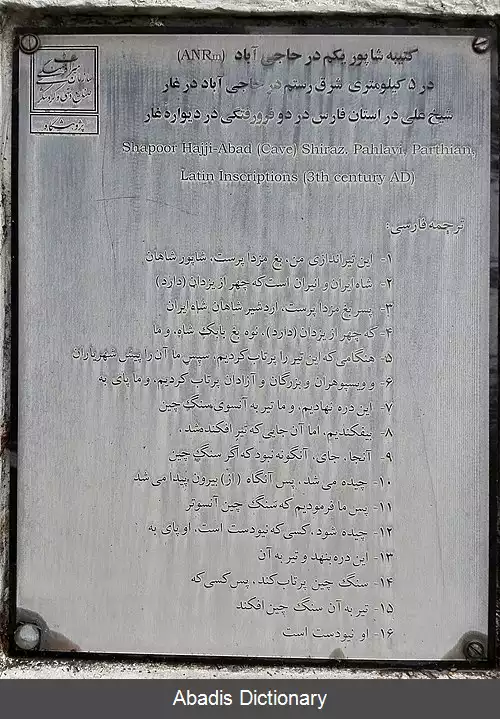 کتیبه شاپور یکم در حاجی آباد (ANRm)
در ۵ کیلومتری شرق رستم در حاجی آباد در غار
شیخ علی در استان فارس در دو فرورفتگی در دیواره غار
Shapoor Hajji-Abad (Cave) Shiraz. Pahlavi, Parthian,
Latin Inscriptions (3th century AD)
ترجمه فارسی:
۱- این تیراندازی من، بغ مزدا پرست، شاپور شاهان
۲- شاه ایران و انیران است که چهر از یزدان (دارد)
۳- پسر بغ مزدا پرست، اردشیر شاهان شاه ایران
۴- که چهر از یزدان (دارد)، نوه بغ بابک شاه، و ما
۵- هنگامی که این تیر را پرتاب کردیم، سپس ما آن را پیش شهریاران
۶- و ویسپوهران و بزرگان و آزادان پرتاب کردیم، و ما پای به
۷- این دره نهادیم، و ما تیر به آنسوی سنگ چین
۸- بیفکندیم، اما آن جایی که تیر افکنده شد،
۹- آنجا، جای، آنگونه نبود که اگر سنگ چین
۱۰- چیده می شد، پس آنگاه (از) بیرون پیدا می شد
۱۱- پس ما فرمودیم که سنگ چین آنسوتر
۱۲- چیده شود، کسی که نیودست است، او پای به
۱۳- این دره بنهد و تیر به آن
۱۴- سنگ چین پرتاب کند، پس کسی که
۱۵- تیر به آن سنگ چین افکند
۱۶- او نیودست است
پژوهشکده
Abadis Dictionary